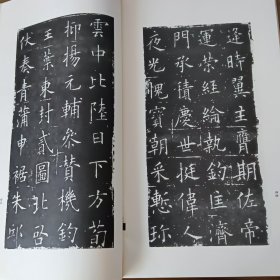 逢時翼主膺期佐帝
運策經綸執鈞匡濟
門承積慶世挺偉人
夜光愧寶朝采慙珎
雲中比陸日下方荀
抑揚元輔參贊機鈞
王葉東封貳圖北啓
伏奏青蒲申裾朱邸